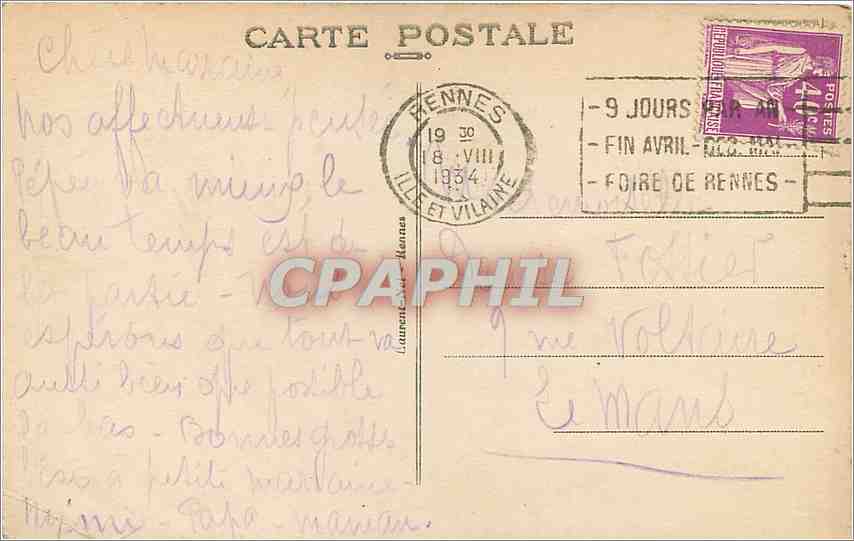 CARTE POSTALE
Chère Marraine
nos affectueuses pensées
Pépé va mieux, le
beau temps est de
la partie - Nous
espérons que tout va
aussi bien que possible
là bas - Bonnes grosses
bises à petite marraine -
Mimi - Papa - maman.
Laurent-Nel - Rennes
RENNES
19 30
18 VIII
1934
ILLE ET VILAINE
- 9 JOURS PAR AN
- FIN AVRIL - DEB. MAI
- FOIRE DE RENNES -
REPUBLIQUE FRANÇAISE
POSTES
40c
Fossier
9 rue Voltaire
Le Mans
CPAPHIL